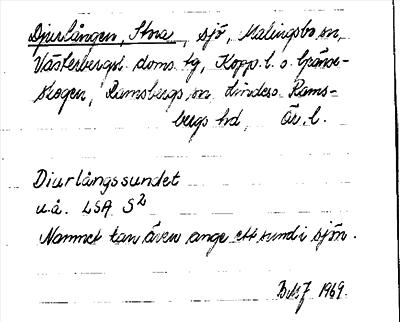 Djurlången, Stora, sjö, Malingsbo sn,
Västerbergsl. doms. tg, Kopp. l. o. Gränge-
skogen, Ramsbergs sn Lindes o. Rams-
bergs hd, Ör. l.
Diurlångssundet
u.å. LSA S2
Namnet kan även ange ett sund i sjön.
1969.